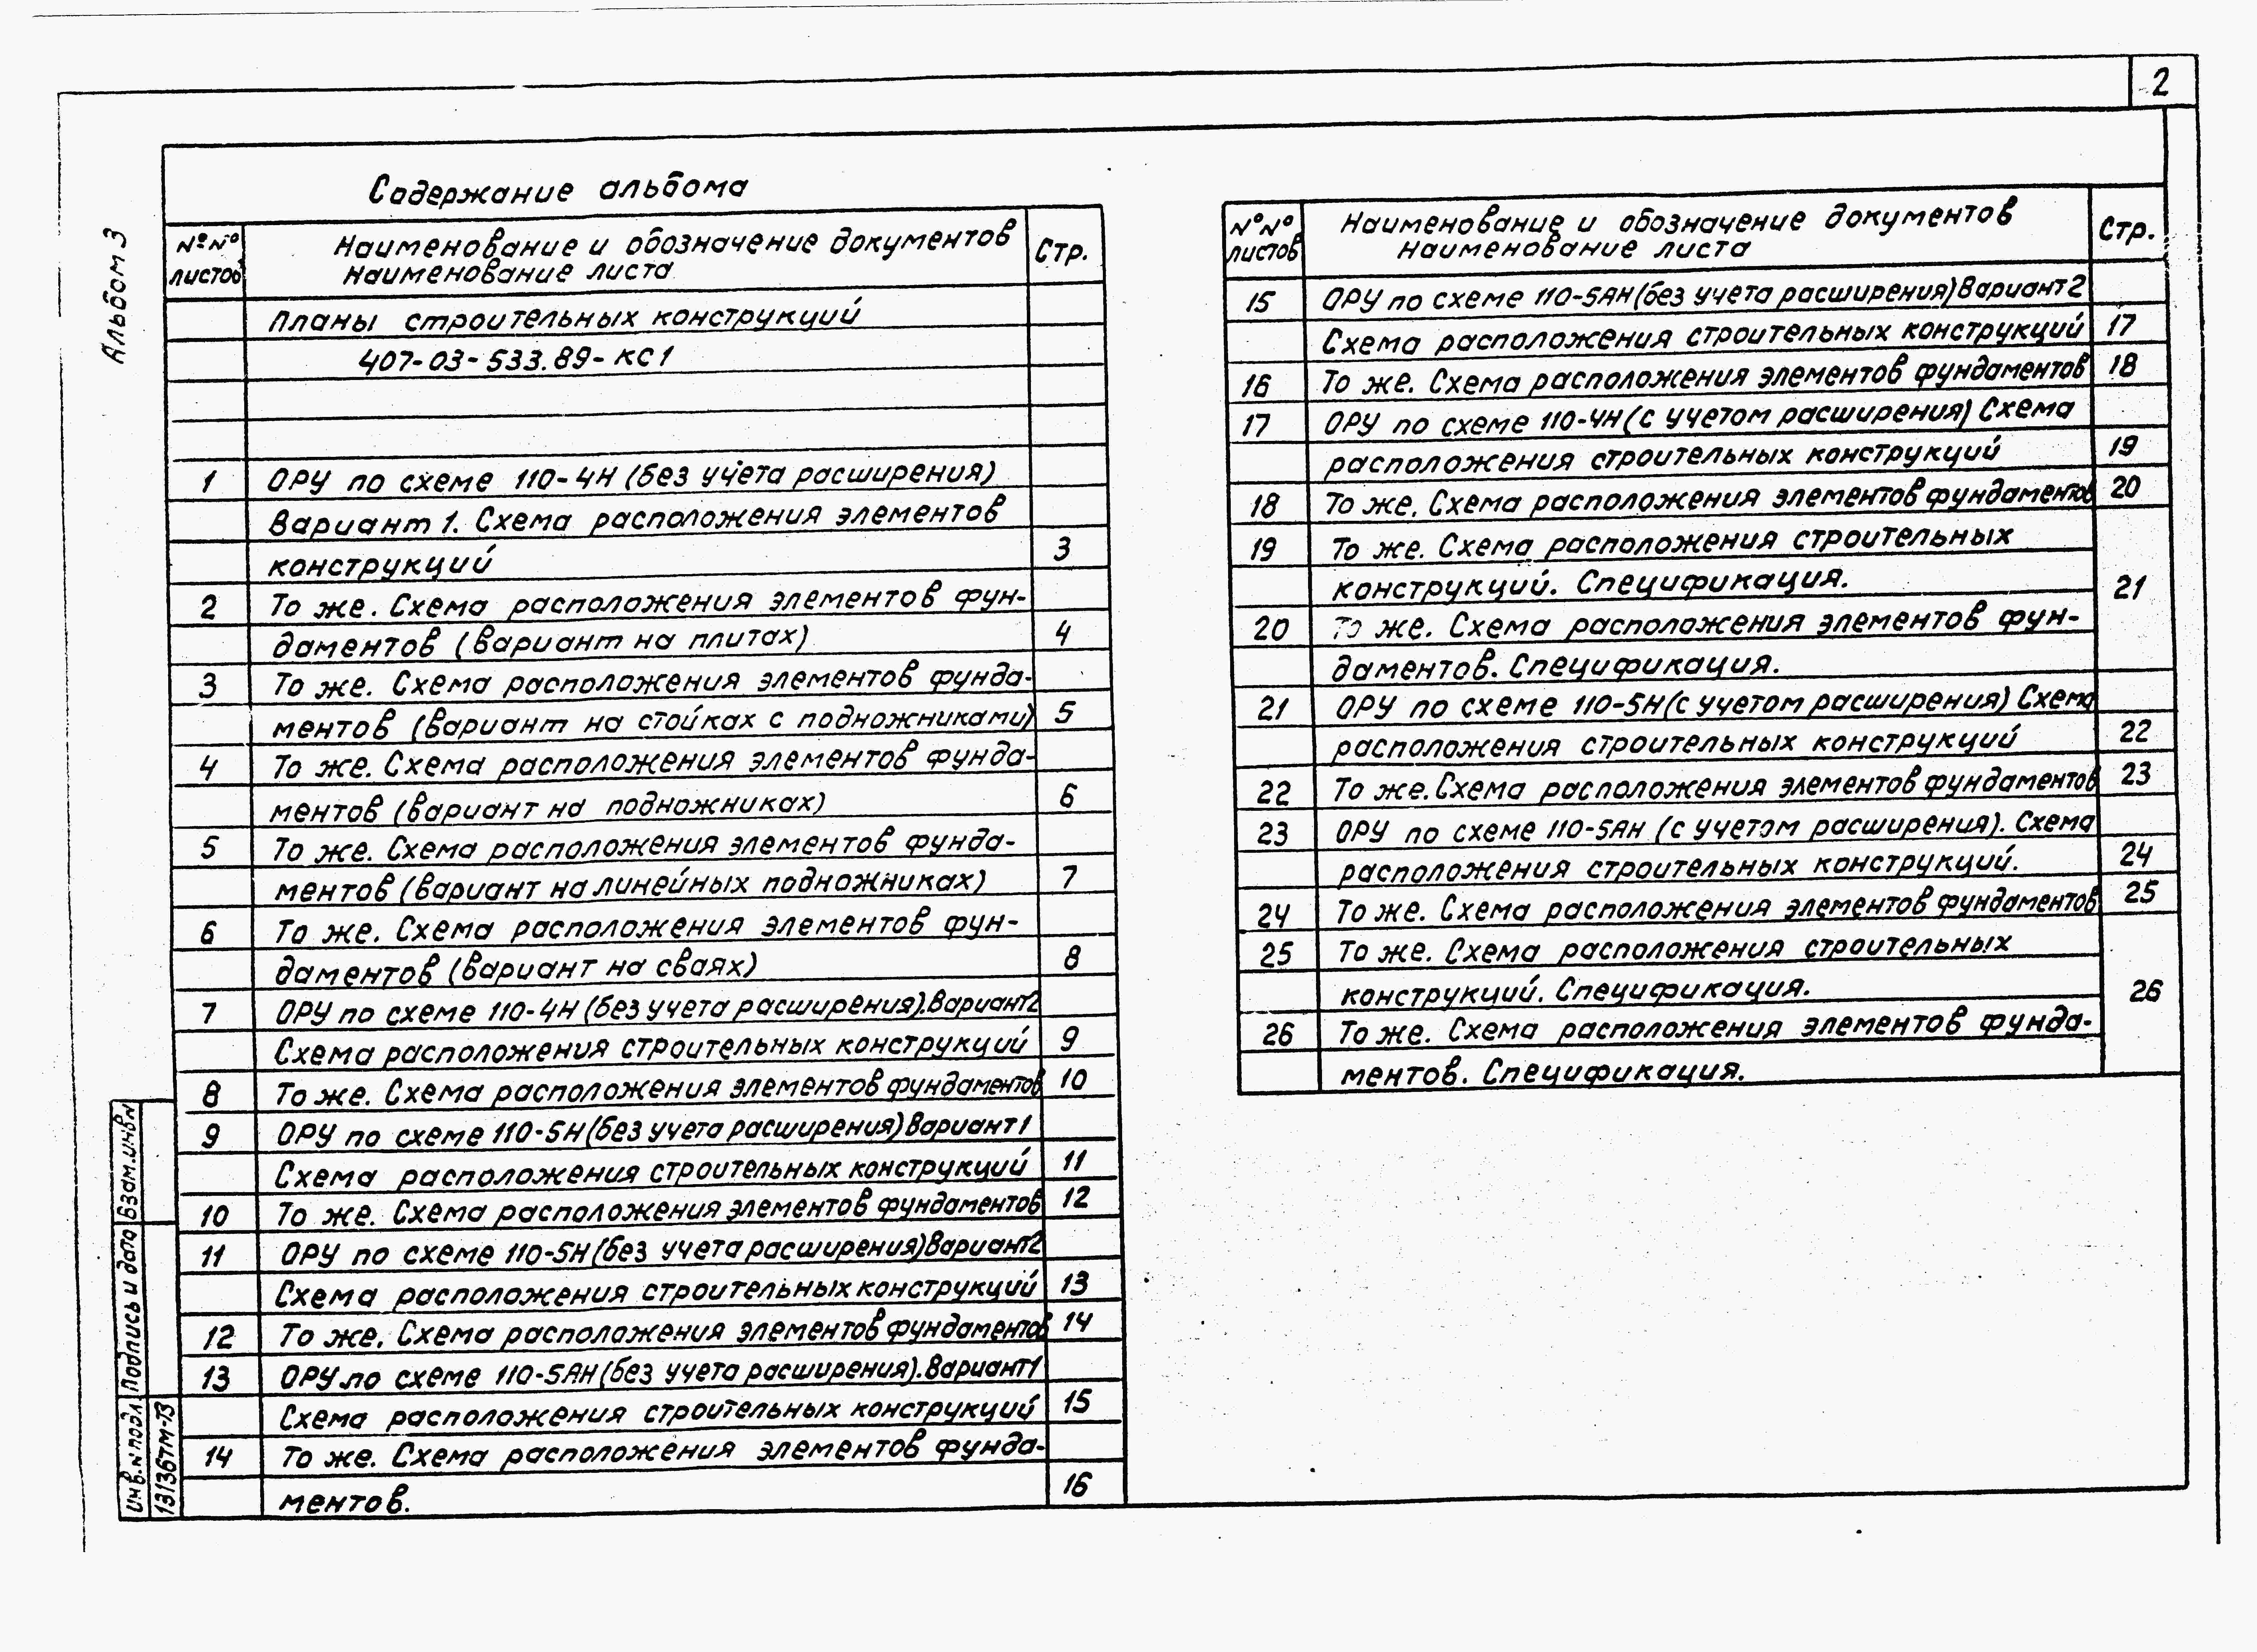 2
Альбом 3
Содержание альбома
№№ листов
Наименование и обозначение документов
Наименование листа
Стр.
Планы строительных конструкций
407-03-533.89-КС1
1 ОРУ по схеме 110-4Н (без учёта расширения)
Вариант 1. Схема расположения элементов
конструкций 3
2 То же. Схема расположения элементов фун-
даментов (вариант на плитах) 4
3 То же. Схема расположения элементов фунда-
ментов (вариант на стойках с подножниками) 5
4 То же. Схема расположения элементов фунда-
ментов (вариант на подножниках) 6
5 То же. Схема расположения элементов фунда-
ментов (вариант на линейных подножниках) 7
6 То же. Схема расположения элементов фун-
даментов (вариант на сваях) 8
7 ОРУ по схеме 110-4Н (без учета расширения). Вариант 2
Схема расположения строительных конструкций 9
8 То же. Схема расположения элементов фундаментов 10
9 ОРУ по схеме 110-5Н (без учета расширения) Вариант 1
Схема расположения строительных конструкций 11
10 То же. Схема расположения элементов фундаментов 12
11 ОРУ по схеме 110-5Н (без учета расширения) Вариант 2
Схема расположения строительных конструкций 13
12 То же. Схема расположения элементов фундаментов 14
13 ОРУ по схеме 110-5АН (без учета расширения). Вариант 1
Схема расположения строительных конструкций 15
14 То же. Схема расположения элементов фунда-
ментов. 16
№№ листов
Наименование и обозначение документов
Наименование листа
Стр.
15 ОРУ по схеме 110-5АН (без учета расширения) Вариант 2
Схема расположения строительных конструкций 17
16 То же. Схема расположения элементов фундаментов 18
17 ОРУ по схеме 110-4Н (с учетом расширения) Схема
расположения строительных конструкций 19
18 То же. Схема расположения элементов фундаментов 20
19 То же. Схема расположения строительных
конструкций. Спецификация. 21
20 То же. Схема расположения элементов фун-
даментов. Спецификация.
21 ОРУ по схеме 110-5Н (с учетом расширения) Схема
расположения строительных конструкций 22
22 То же. Схема расположения элементов фундаментов 23
23 ОРУ по схеме 110-5АН (с учетом расширения). Схема
расположения строительных конструкций. 24
24 То же. Схема расположения элементов фундаментов 25
25 То же. Схема расположения строительных
конструкций. Спецификация. 26
26 То же. Схема расположения элементов фунда-
ментов. Спецификация.
Взам. инв. №
Подпись и дата
Инв. № подл.
13136тм-т3